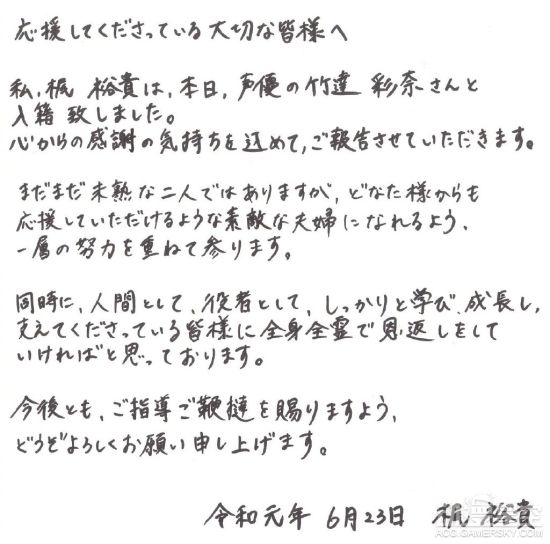 応援してくださっている大切な皆様へ
私、梶 裕貴は、本日、声優の竹達 彩奈さんと
入籍致しました。
心からの感謝の気持ちを込めて、ご報告させていただきます。
まだまだ未熟な二人ではありますが、どなた様からも
応援していただけるような素敵な夫婦になれるよう、
一層の努力を重ねて参ります。
同時に、人間として、役者として、しっかりと学び、成長し、
支えてくださっている皆様に全身全霊で恩返しをして
いければと思っております。
今後とも、ご指導ご鞭撻を賜りますよう、
どうぞよろしくお願い申し上げます。
令和元年 6月23日 梶 裕貴
ACG.GAMERSKY.COM